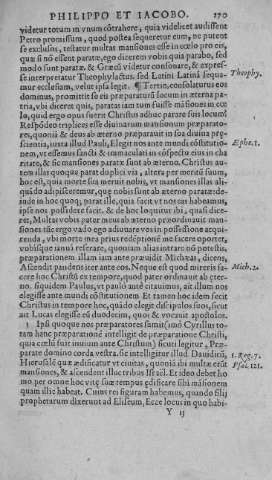 PHILIPPO ET IACOBO. 170
videtur totum in vnum cōtrahere, quia videlicet audisset
Petro promissum, quod postea sequeretur eum, ne putent
se exclusos, testatur multas mansiones esse in cœlo pro eis,
quasi nō essent paratæ, ego dicerem vobis quia parabo, sed
modo sunt paratæ. & Græci videtur consonare, & expres-
se interpretatur Theophylactus. sed Latini Latinā sequa-
mur ecclesiam, velut ipsa legit. ¶ Tertio, consolaturus eos
dominus, promittit se eis præparaturū locum in æterna pa-
tria,
Lo, quid ergo opus fuerit Christū adhuc parare suis locum?
Respōdeo triplices esse diuinarum mansionum præparatio-
nes, quoniā & deus ab æterno præparauit in sua diuina præ-
scientia, iuxta illud Pauli, Elegit nos ante mundi cōstitutio-
nem, vt essemus sancti & immaculati in cōspectu eius in cha
ritate, & sic mansiones paratæ sunt ab æterno. Christus au-
tem illas quoque parat duplici via, altera per meritū suum,
hoc est, quia morte sua meruit nobis, vt mansiones illas ali-
quādo adipisceremur, quæ nobis sunt ab æterno paratæ: de-
inde in hoc quoq; parat ille, quia facit vt nos eas habeamus,
ipse nos possidere facit. & de hoc loquitur ibi, quasi dice-
ret, Multas vobis pater meus ab æterno præordinauit man-
siones: ego vado ego adiuuare vos in possessione acqui-
renda, vbi morte mea prius redēptionē me facere oportet,
vobisque ianuā referare, quoniam alias intrare nō potestis,
præparationem. illam iam ante præuidit Michæas, dicens,
Ascendit pandens iter ante eos. Neque est quod mireris fa-
cere hoc Christū ex tempore, quod pater ordinauit ab æter-
no. siquidem Paulus, vt paulò ante citauimus, ait illum nos
elegisse ante mundi cōstitutionem. Et tamen hoc idem fecit
Christus in tempore hoc, quādo elegit discipulos suos, sicut
ait Lucas elegisse eos duodecim, quos & vocauit apostolos.
¶ Ipsi quoque nos præparatores sumus: sic Cyrillus to-
tam hanc præparationē intelligit de præparatione Christi,
quia cœlū fuit inuium ante Christum) sicuti legitur, Præ-
parate domino corda vestra. sic intelligitur illud Dauidicū,
Hierusalē quæ ædificatur vt ciuitas, quoniā ibi multæ erāt
mansiones, & ascendent illuc tribus Israël. Et ideo debet ho
mo per omne hoc vitæ suæ tempus edificare sibi māsionem
quam illic habeat. Cuius rei figuram habemus, quando filij
prophetarum dixerunt ad Eliseum, Ecce locus in quo habi-
Y ij
Theophy.
Ephe.1.
Mich.2.
1. Reg.7.
Psal.121.